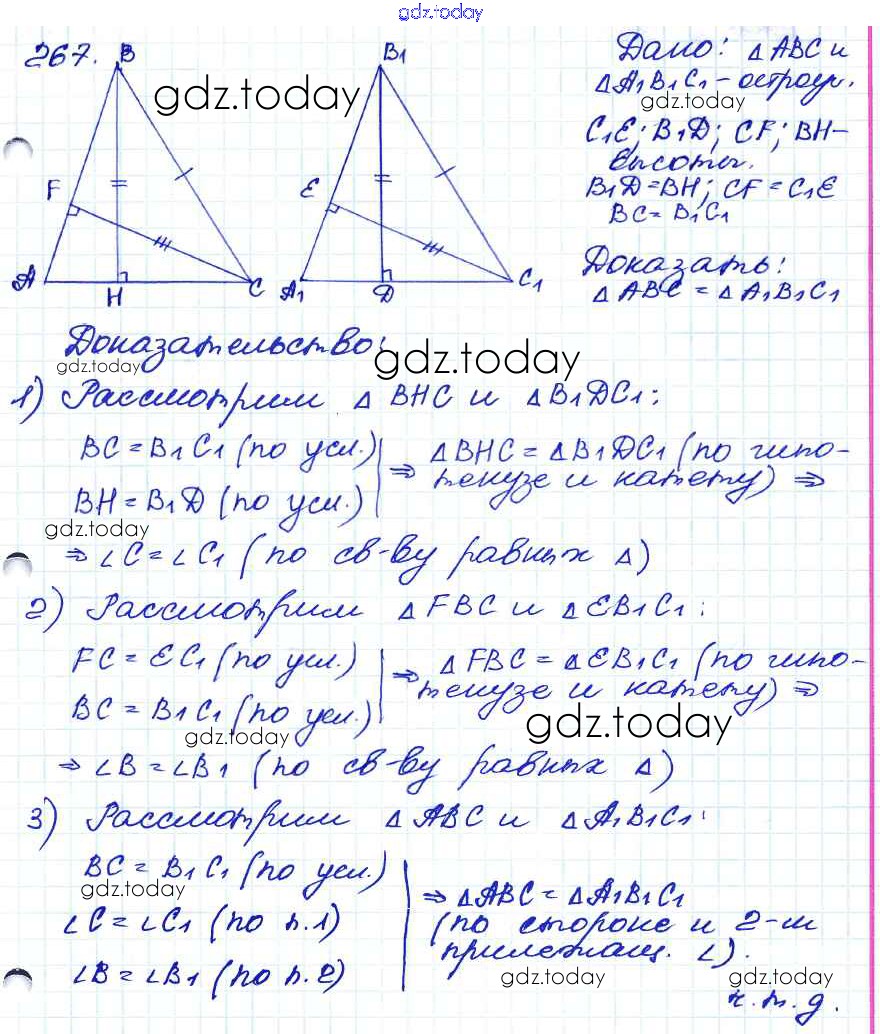 gdz.today
267.
B
F
A
H
C
B1
E
A1
D
C1
gdz.today
Дано: △ABC и
△A1B1C1 – остроуг.
gdz.today
C1E; B1D; CF; BH –
высоты.
B1D = BH; CF = C1E
BC = B1C1
Доказать:
△ABC = △A1B1C1
Доказательство:
gdz.today
gdz.today
1) Рассмотрим △BHC и △B1DC1:
BC = B1C1 (по усл.)
BH = B1D (по усл.)
⇒ △BHC = △B1DC1 (по гипо-
тенузе и катету) ⇒
gdz.today
⇒ ∠C = ∠C1 (по св-ву равных △)
2) Рассмотрим △FBC и △EB1C1:
FC = EC1 (по усл.)
BC = B1C1 (по усл.)
⇒ △FBC = △EB1C1 (по гипо-
тенузе и катету) ⇒
gdz.today
gdz.today
⇒ ∠B = ∠B1 (по св-ву равных △)
3) Рассмотрим △ABC и △A1B1C1:
BC = B1C1 (по усл.)
gdz.today
∠C = ∠C1 (по п.1)
∠B = ∠B1 (по п.2)
⇒ △ABC = △A1B1C1
(по стороне и 2-м
прилежащ. ∠).
gdz.today
gdz.today
ч.т.д.